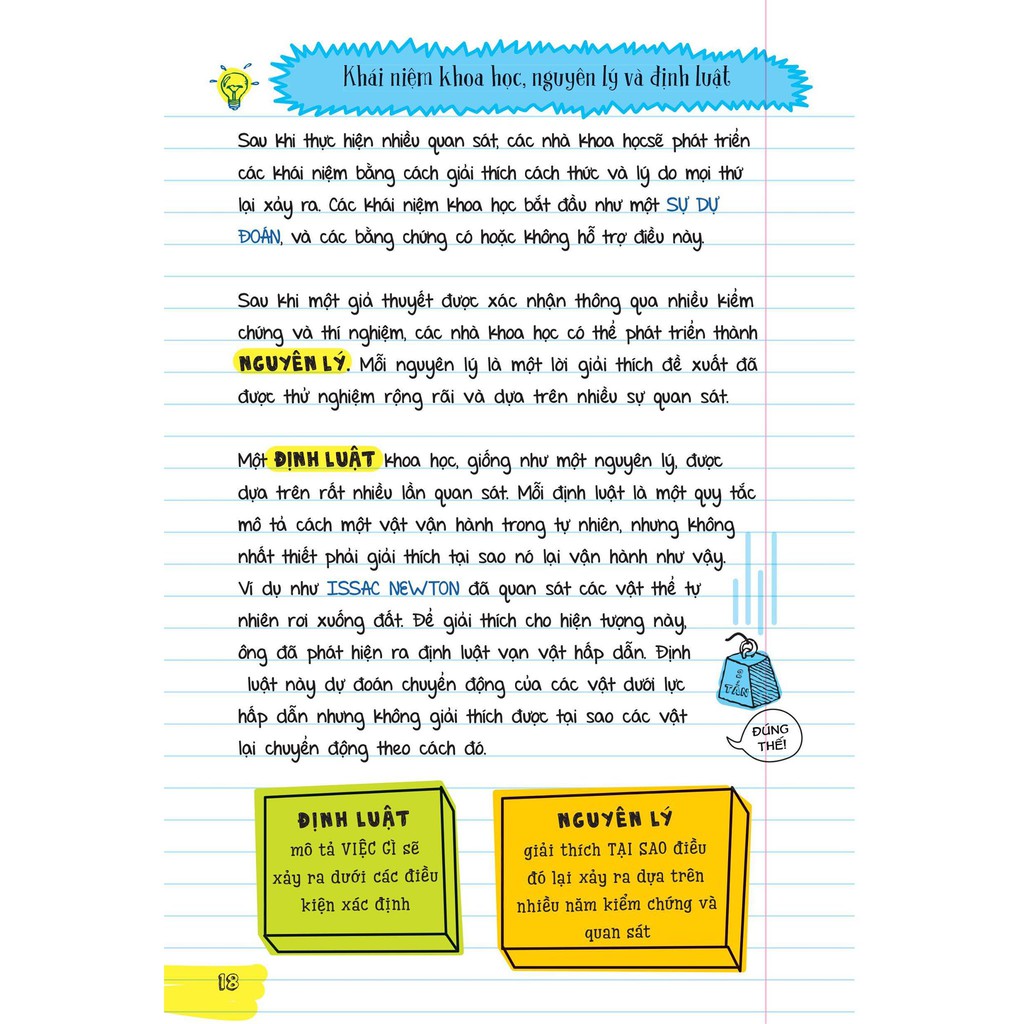 Khái niệm khoa học, nguyên lý và định luật
Sau khi thực hiện nhiều quan sát, các nhà khoa họcsẽ phát triển
các khái niệm bằng cách giải thích cách thức và lý do mọi thứ
lại xảy ra. Các khái niệm khoa học bắt đầu như một SỰ DỰ
ĐOÁN, và các bằng chứng có hoặc không hỗ trợ điều này.
Sau khi một giả thuyết được xác nhận thông qua nhiều kiểm
chứng và thí nghiệm, các nhà khoa học có thể phát triển thành
NGUYÊN LÝ. Mỗi nguyên lý là một lời giải thích đề xuất đã
được thử nghiệm rộng rãi và dựa trên nhiều sự quan sát.
Một ĐỊNH LUẬT khoa học, giống như một nguyên lý, được
dựa trên rất nhiều lần quan sát. Mỗi định luật là một quy tắc
mô tả cách một vật vận hành trong tự nhiên, nhưng không
nhất thiết phải giải thích tại sao nó lại vận hành như vậy.
Ví dụ như ISSAC NEWTON đã quan sát các vật thể tự
nhiên rơi xuống đất. Để giải thích cho hiện tượng này,
ông đã phát hiện ra định luật vạn vật hấp dẫn. Định
luật này dự đoán chuyển động của các vật dưới lực
hấp dẫn nhưng không giải thích được tại sao các vật
lại chuyển động theo cách đó.
TẤN
ĐÚNG
THẾ!
ĐỊNH LUẬT
mô tả VIỆC GÌ sẽ
xảy ra dưới các điều
kiện xác định
NGUYÊN LÝ
giải thích TẠI SAO điều
đó lại xảy ra dựa trên
nhiều năm kiểm chứng và
quan sát
18